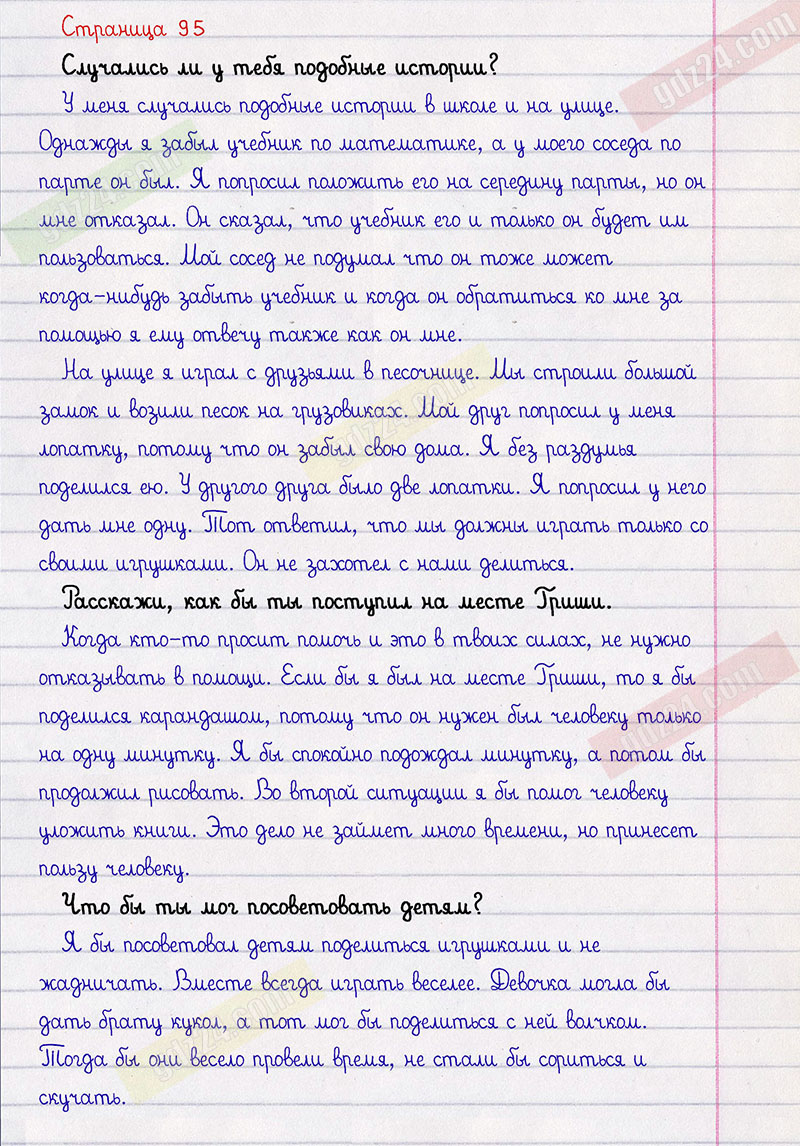 Страница 95
Случались ли у тебя подобные истории?
У меня случались подобные истории в школе и на улице.
Однажды я забыл учебник по математике, а у моего соседа по
парте он был. Я попросил положить его на середину парты, но он
мне отказал. Он сказал, что учебник его и только он будет им
пользоваться. Мой сосед не подумал что он тоже может
когда-нибудь забыть учебник и когда он обратиться ко мне за
помощью я ему отвечу также как он мне.
На улице я играл с друзьями в песочнице. Мы строили большой
замок и возили песок на грузовиках. Мой друг попросил у меня
лопатку, потому что он забыл свою дома. Я без раздумья
поделился ею. У другого друга было две лопатки. Я попросил у него
дать мне одну. Тот ответил, что мы должны играть только со
своими игрушками. Он не захотел с нами делиться.
Расскажи, как бы ты поступил на месте Гриши.
Когда кто-то просит помочь и это в твоих силах, не нужно
отказывать в помощи. Если бы я был на месте Гриши, то я бы
поделился карандашом, потому что он нужен был человеку только
на одну минутку. Я бы спокойно подождал минутку, а потом бы
продолжил рисовать. Во второй ситуации я бы помог человеку
уложить книги. Это дело не займет много времени, но принесет
пользу человеку.
Что бы ты мог посоветовать детям?
Я бы посоветовал детям поделиться игрушками и не
жадничать. Вместе всегда играть веселее. Девочка могла бы
дать брату кукол, а тот мог бы поделиться с ней волчком.
Тогда бы они весело провели время, не стали бы сориться и
скучать.
gdz24.com
gdz24.com
gdz24.com
gdz24.com
gdz24.com